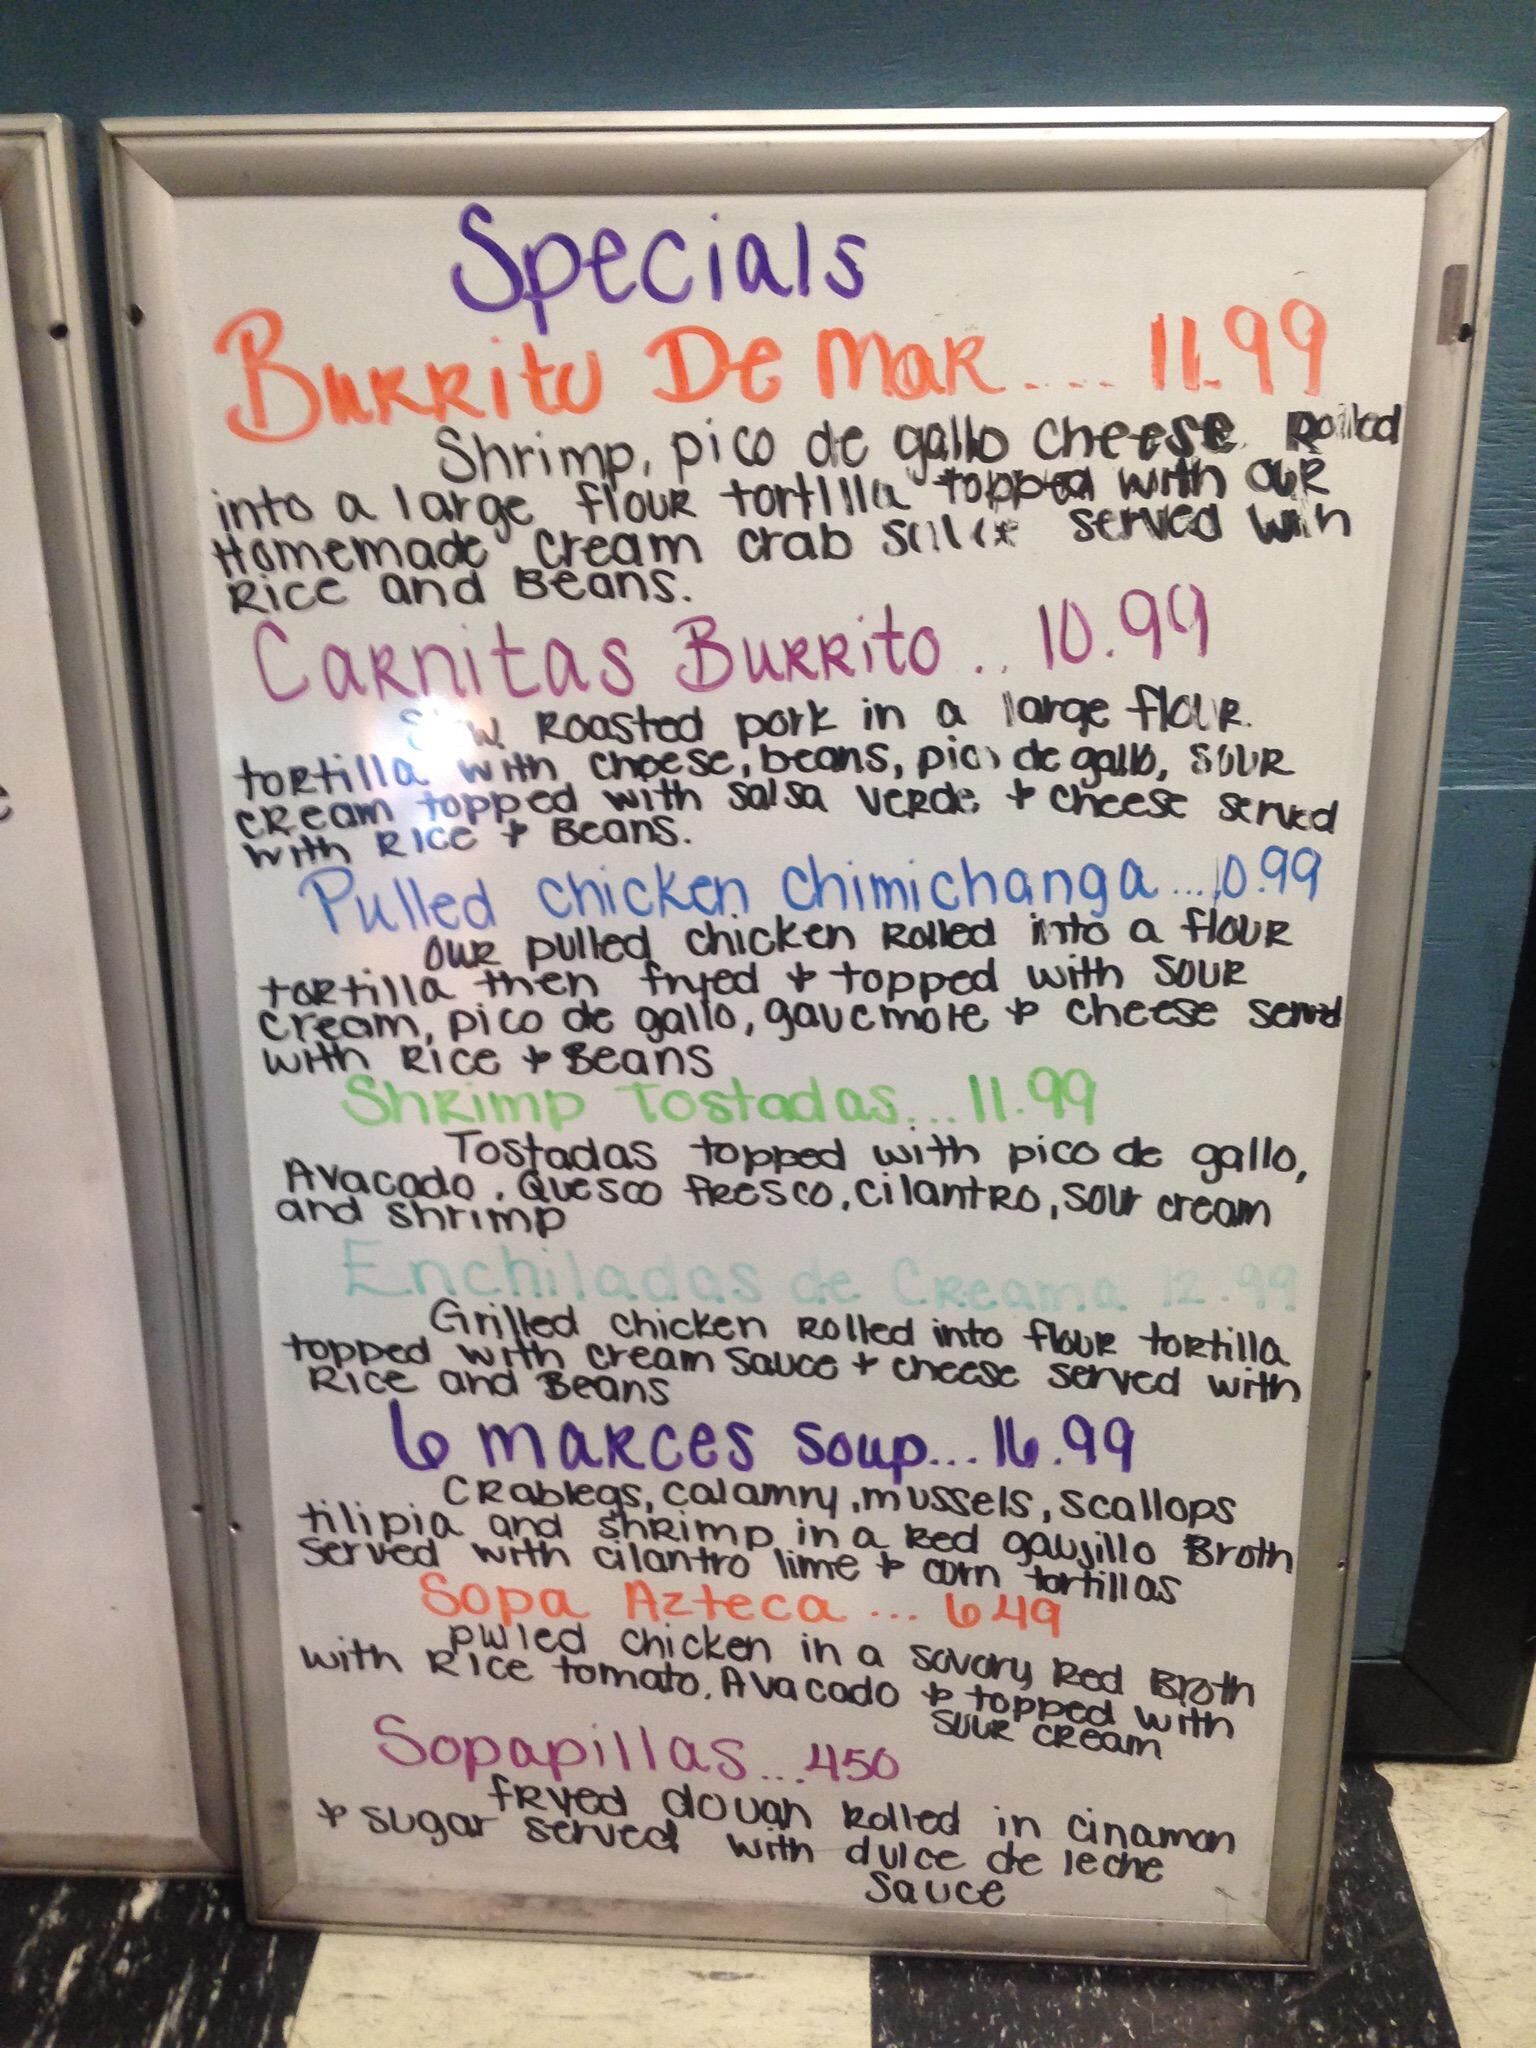 Specials
Burrito De Mar .... 11.99
Shrimp, pico de gallo cheese Rolled
into a large flour tortilla topped with our
Homemade cream crab sauce served with
Rice and Beans.
Carnitas Burrito .. 10.99
Slow Roasted pork in a large flour
tortilla with cheese, beans, pico de gallo, sour
cream topped with salsa verde & cheese served
with Rice & Beans.
Pulled chicken chimichanga ... 10.99
Our pulled chicken Rolled into a flour
tortilla then fryed & topped with sour
cream, pico de gallo, gaucmole & cheese served
with Rice & Beans
Shrimp Tostadas... 11.99
Tostadas topped with pico de gallo,
Avacado, Quesco fresco, cilantro, sour cream
and shrimp
Enchiladas de Creama 12.99
Grilled chicken rolled into flour tortilla
topped with cream sauce & cheese served with
Rice and Beans
6 marces soup... 16.99
Crablegs, calamry, mussels, scallops
tilipia and shrimp in a Red gaujillo Broth
served with cilantro lime & corn tortillas
Sopa Azteca ... 6 49
pulled chicken in a savory Red Broth
with Rice tomato, Avacado & topped with
sour cream
Sopapillas ... 450
fryed dough Rolled in cinamon
& sugar served with dulce de leche
sauce